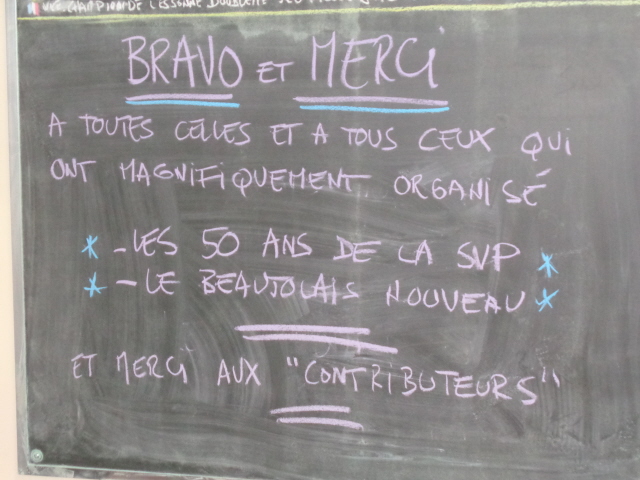 CHAMPION DE L'ESSONNE
BRAVO ET MERCI
A TOUTES CELLES ET A TOUS CEUX QUI
ONT MAGNIFIQUEMENT ORGANISÉ
* - LES 50 ANS DE LA SVP *
* - LE BEAUJOLAIS NOUVEAU *
ET MERCI AUX "CONTRIBUTEURS"